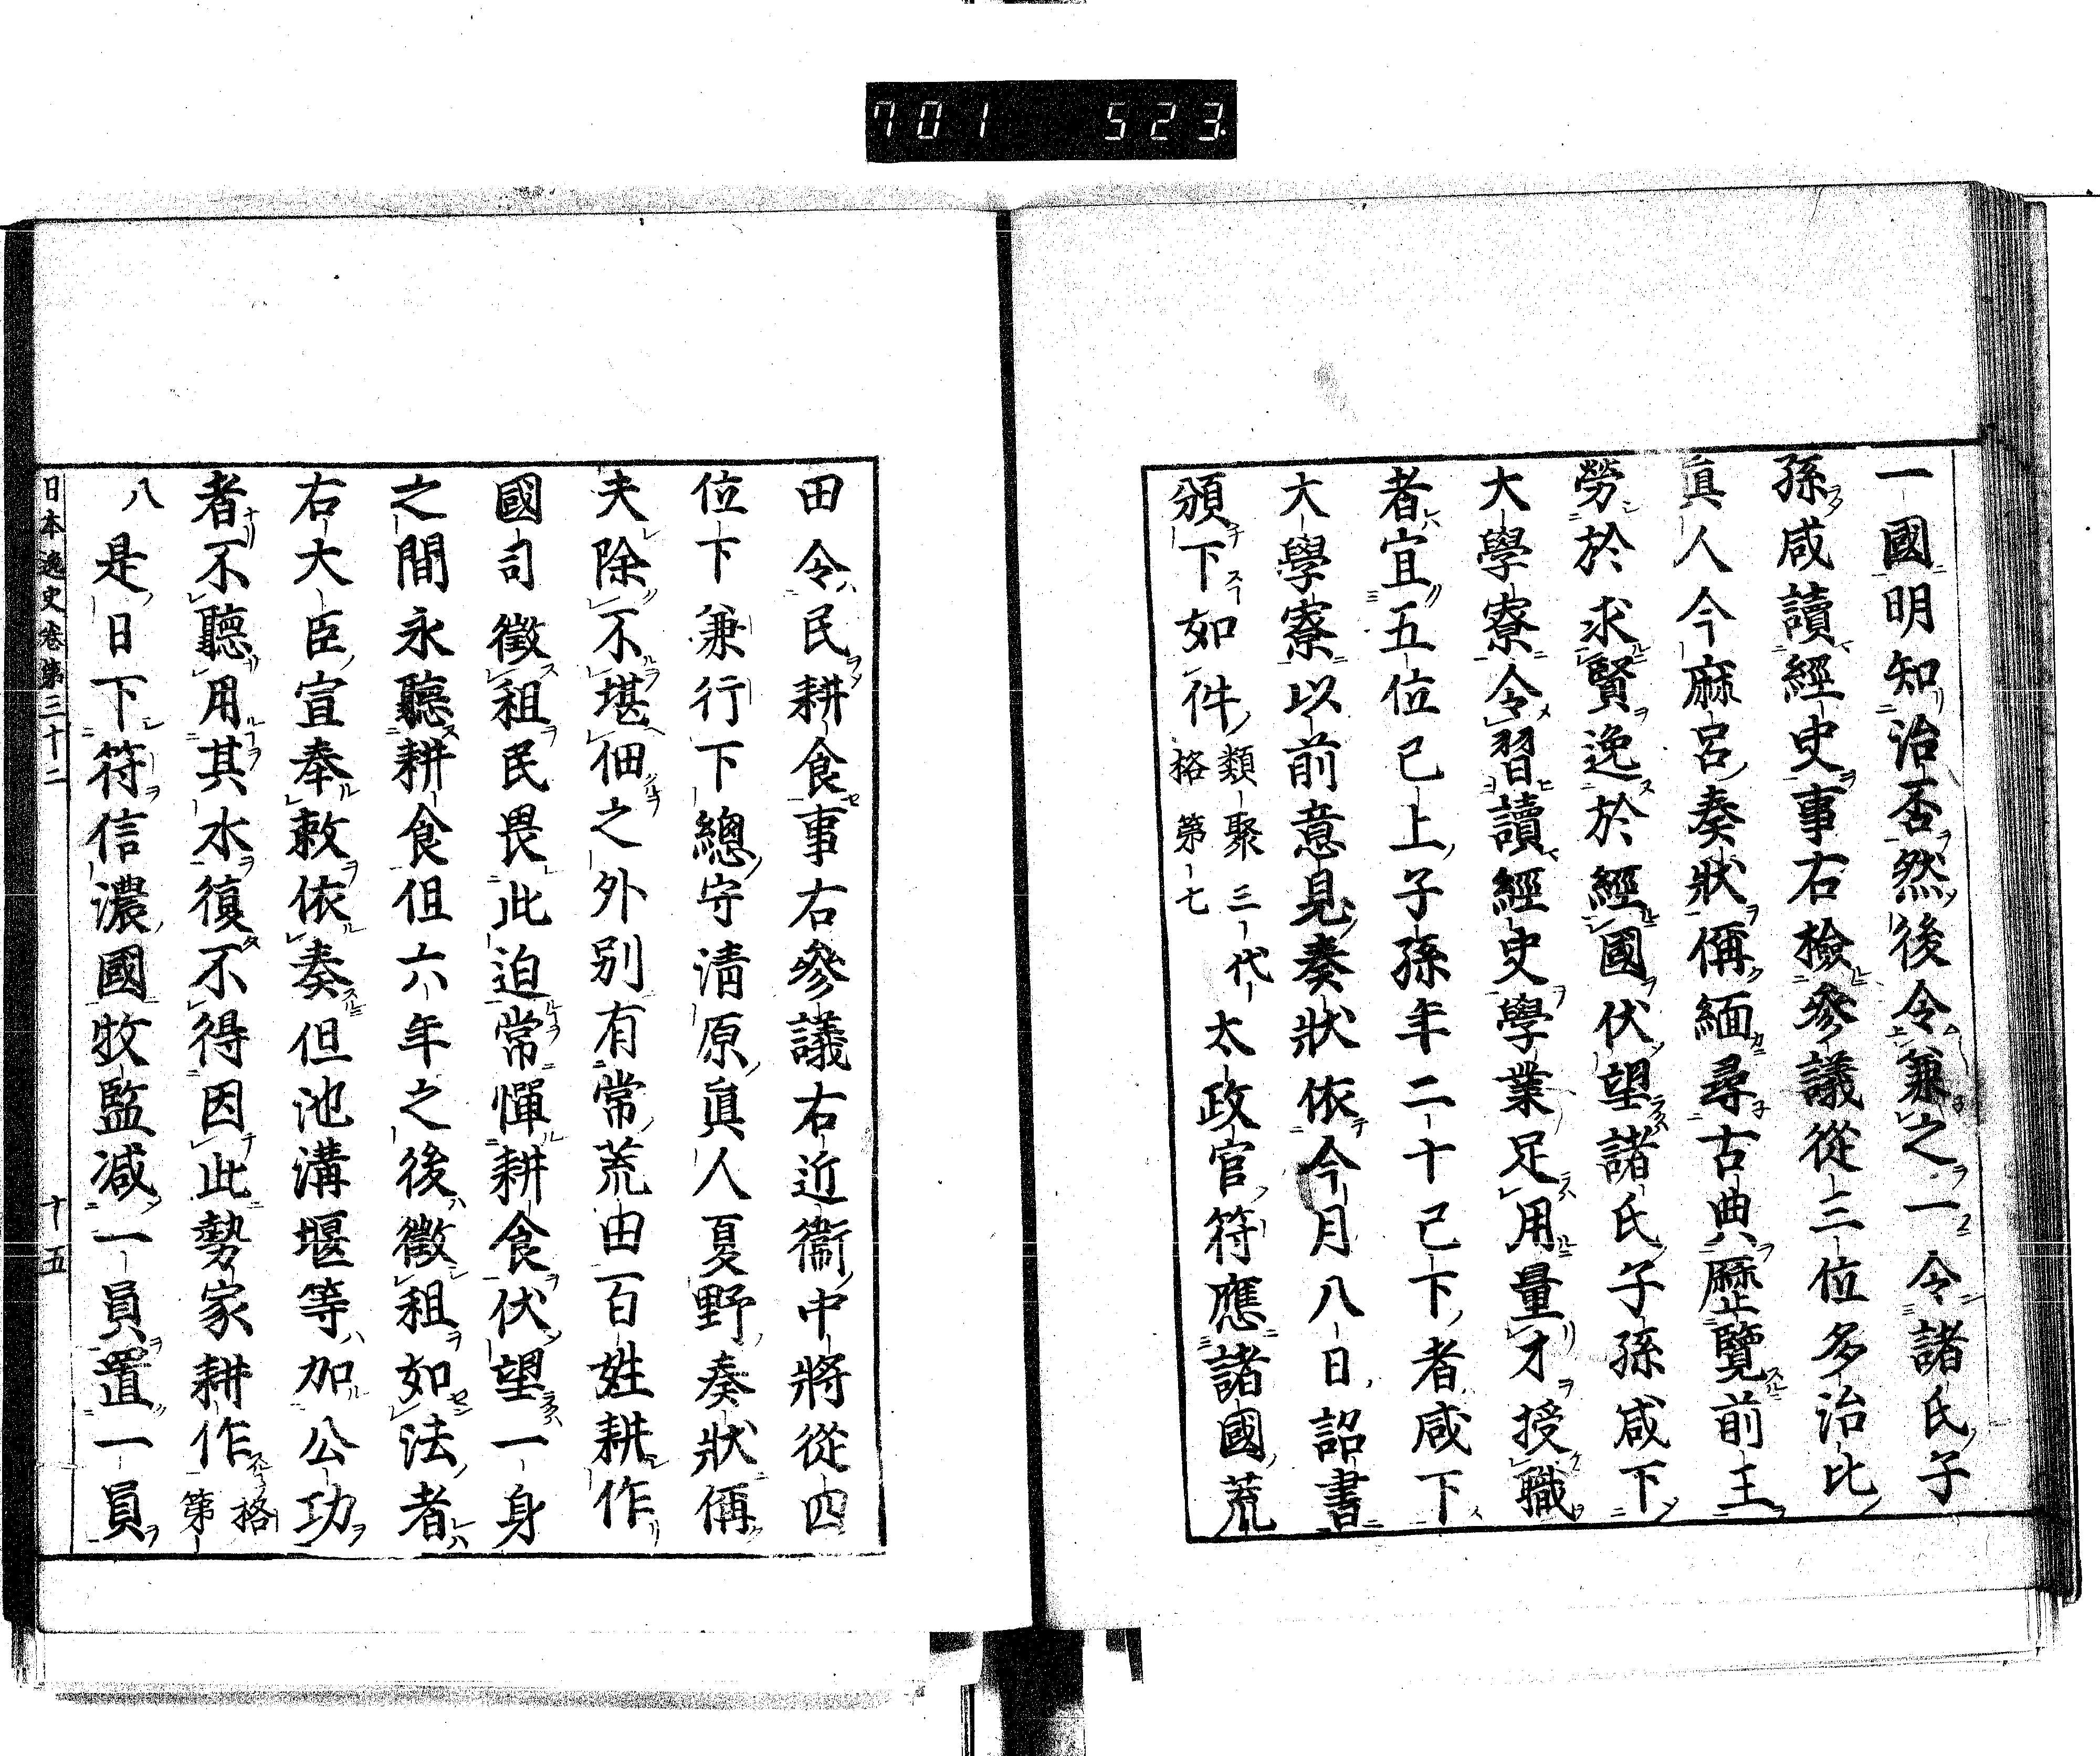 701 523
一國明知治否然後令兼之一令諸氏子
孫咸讀經史事右檢參議從三位多治比
眞人今麻呂奏狀偁緬尋古典歷覽前王
勞於求賢逸於經國伏望諸氏子孫咸下
大學寮令習讀經史學業足用量才授職
者宜五位已上子孫年二十已下者咸下
大學寮以前意見奏狀依今月八日詔書
頒下如件類聚三代格第七太政官符應諸國荒
田令民耕食事右參議右近衞中將從四
位下兼行下總守清原眞人夏野奏狀偁
夫除不堪佃之外別有常荒田百姓耕作
國司徵租民畏此迫常憚耕食伏望一身
之間永聽耕食但六年之後徵租如法者
右大臣宣奉敕依奏但池溝堰等加公功
者不聽用其水復不得因此勢家耕作格第
八是日下符信濃國牧監減一員置一員
日本逸史卷第三十二 十五